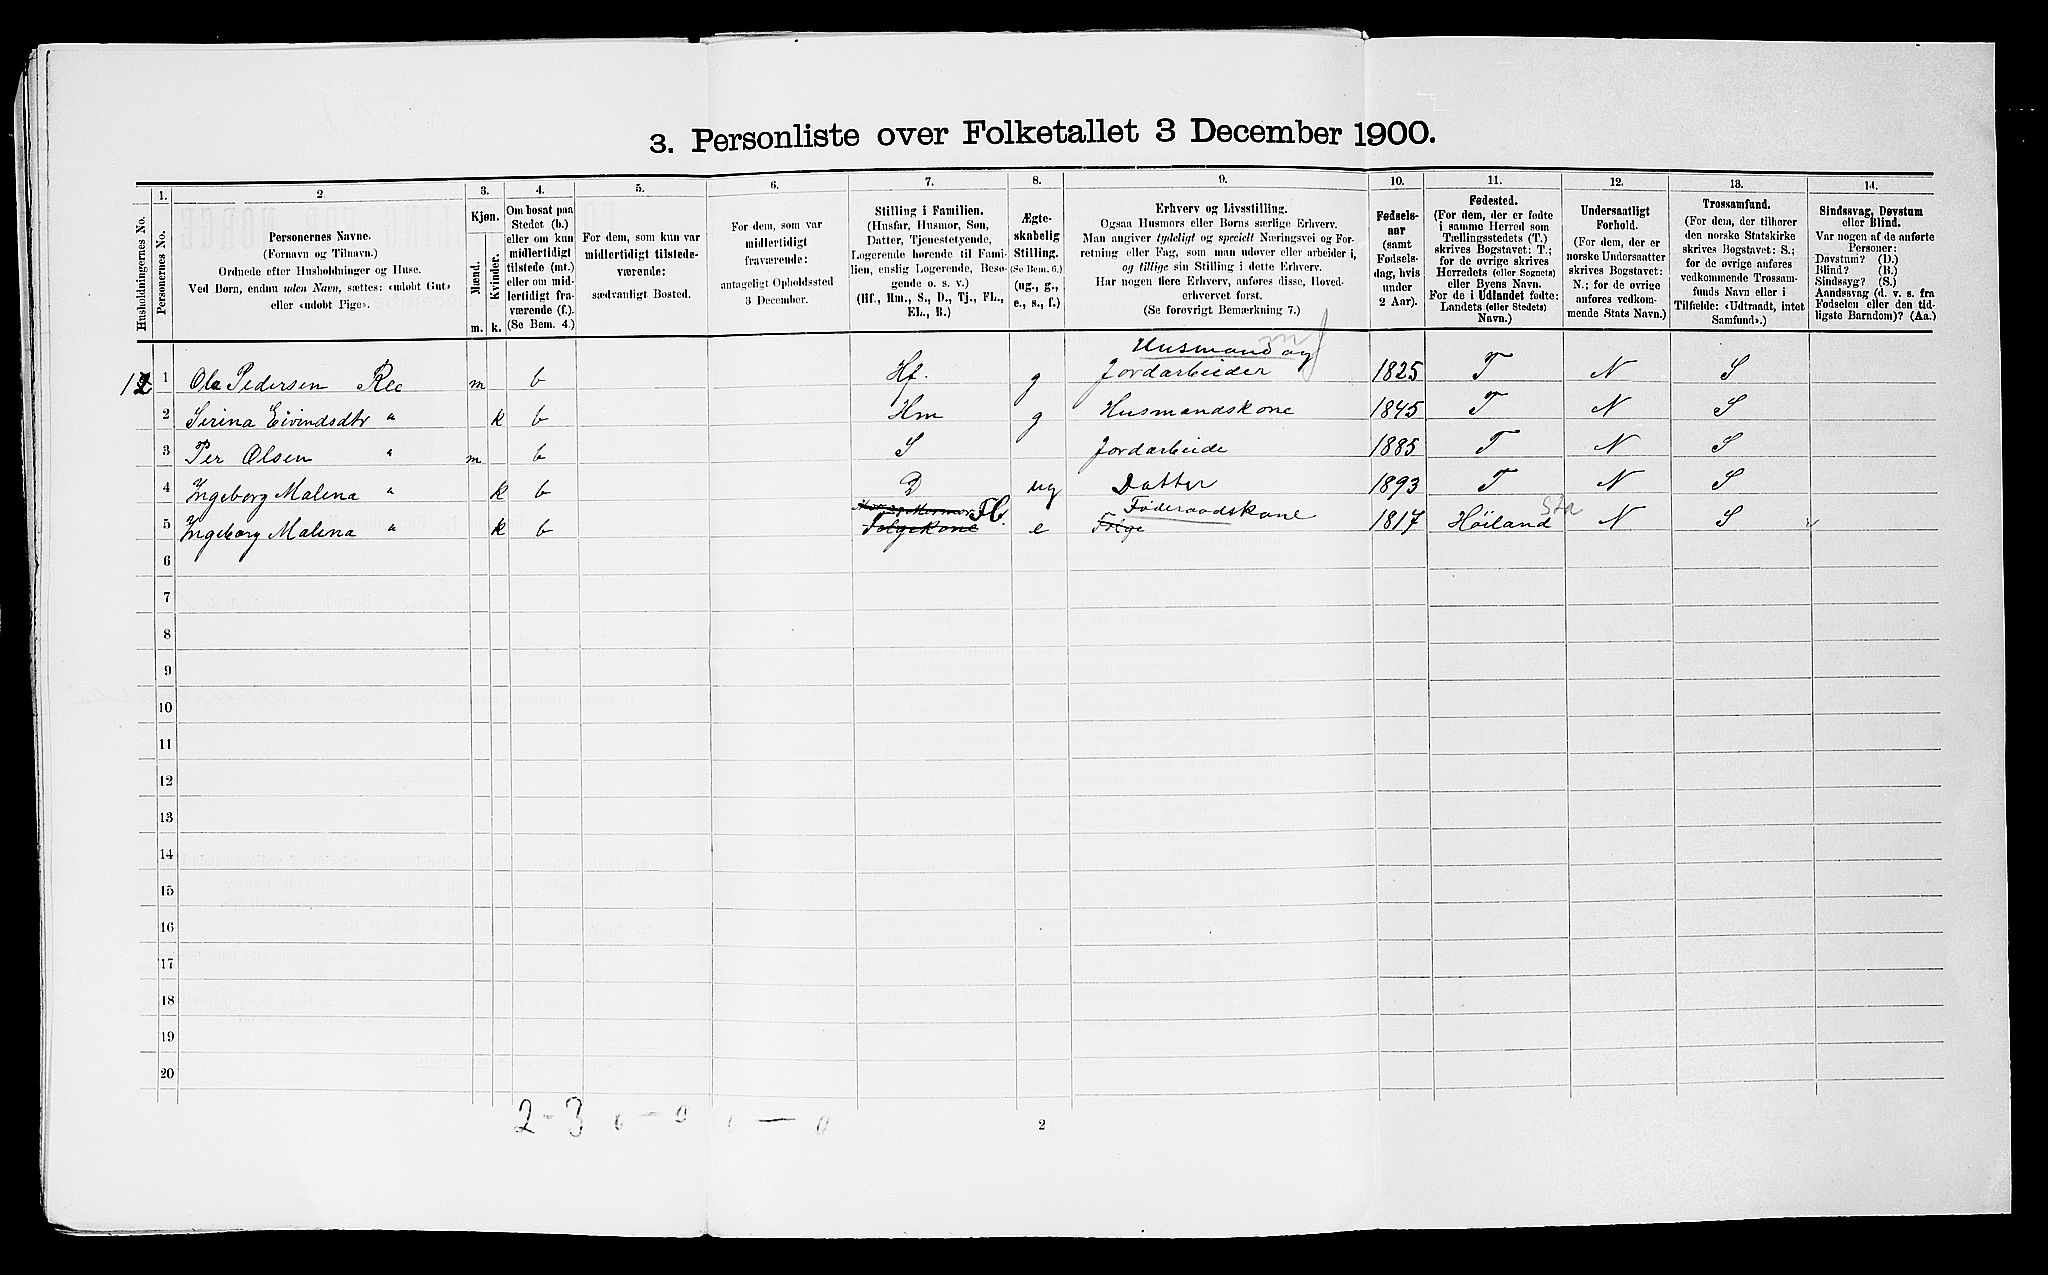 3. Personliste over Folketallet 3 December 1900.
1. 2. 3. 4. 5. 6. 7. 8. 9. 10. 11. 12. 13. 14.
Husholdningernes No.
Personernes No.
Personernes Navne.
(Fornavn og Tilnavn.)
Ordnede efter Husholdninger og Huse.
Ved Børn, endnu uden Navn, sættes: «udøbt Gut»
eller «udøbt Pige».
Kjøn.
Mænd.
Kvinder.
m. k.
Om bosat paa
Stedet (b.)
eller om kun
midlertidigt
tilstede (mt.)
eller om mid-
lertidigt fra-
værende (f.)
(Se Bem. 4.)
For dem, som kun var
midlertidigt tilstede-
værende:
sædvanligt Bosted.
For dem, som var
midlertidigt
fraværende:
antageligt Opholdssted
3 December.
Stilling i Familien.
(Husfar, Husmor, Søn,
Datter, Tjenestetyende,
Logerende hørende til Fami-
lien, enslig Logerende, Besø-
gende o. s. v.)
(Hf., Hm., S., D., Tj., FL.,
EL., B.)
Ægte-
skabelig
Stilling.
(Se Bem. 6.)
(ug., g.,
e., s., f.)
Erhverv og Livsstilling.
Ogsaa Husmors eller Børns særlige Erhverv.
Man angiver tydeligt og specielt Næringsvei og For-
retning eller Fag, som man udøver eller arbeider i,
og tillige sin Stilling i dette Erhverv.
Har nogen flere Erhverv, anføres disse, Hoved-
erhvervet først.
(Se forøvrigt Bemærkning 7.)
Fødsels-
aar
(samt
Fødsels-
dag, hvis
under
2 Aar).
Fødested.
(For dem, der er fødte
i samme Herred som
Tællingsstedets (T.)
skrives Bogstavet: T.;
for de øvrige skrives
Herredets (eller Sognets)
eller Byens Navn.
For de i Udlandet fødte:
Landets (eller Stedets)
Navn.)
Undersaatligt
Forhold.
(For dem, der er
norske Undersaatter
skrives Bogstavet:
N.; for de øvrige
anføres vedkom-
mende Stats Navn.)
Trossamfund.
(For dem, der tilhører
den norske Statskirke
skrives Bogstavet: S.;
for de øvrige anføres
vedkommende Trossam-
funds Navn eller i
Tilfælde: «Udtraadt, intet
Samfund».)
Sindssvag, Døvstum
eller Blind.
Var nogen af de anførte
Personer:
Døvstum? (D.)
Blind? (B.)
Sindssyg? (S.)
Aandssvag (d. v. s. fra
Fødselen eller den tid-
ligste Barndom)? (Aa.)
Husmand og
1 Ole Pedersen Ree m b Hf. g Jordarbeider 1825 T N S
2 Sirina Eivindsdtr " k b Hm g Husmandskone 1845 T N S
3 Per Olsen " m b S Jordarbeide 1885 T N S
4 Ingeborg Malena " k b D ug Datter 1893 T N S
FL. Føderaadskone Sta
5 Ingeborg Malena " k b Følgekone e Følge 1817 Høiland N S
6
7
8
9
10
11
12
13
14
15
16
17
18
19
20
2-3 0-0 0-0
2